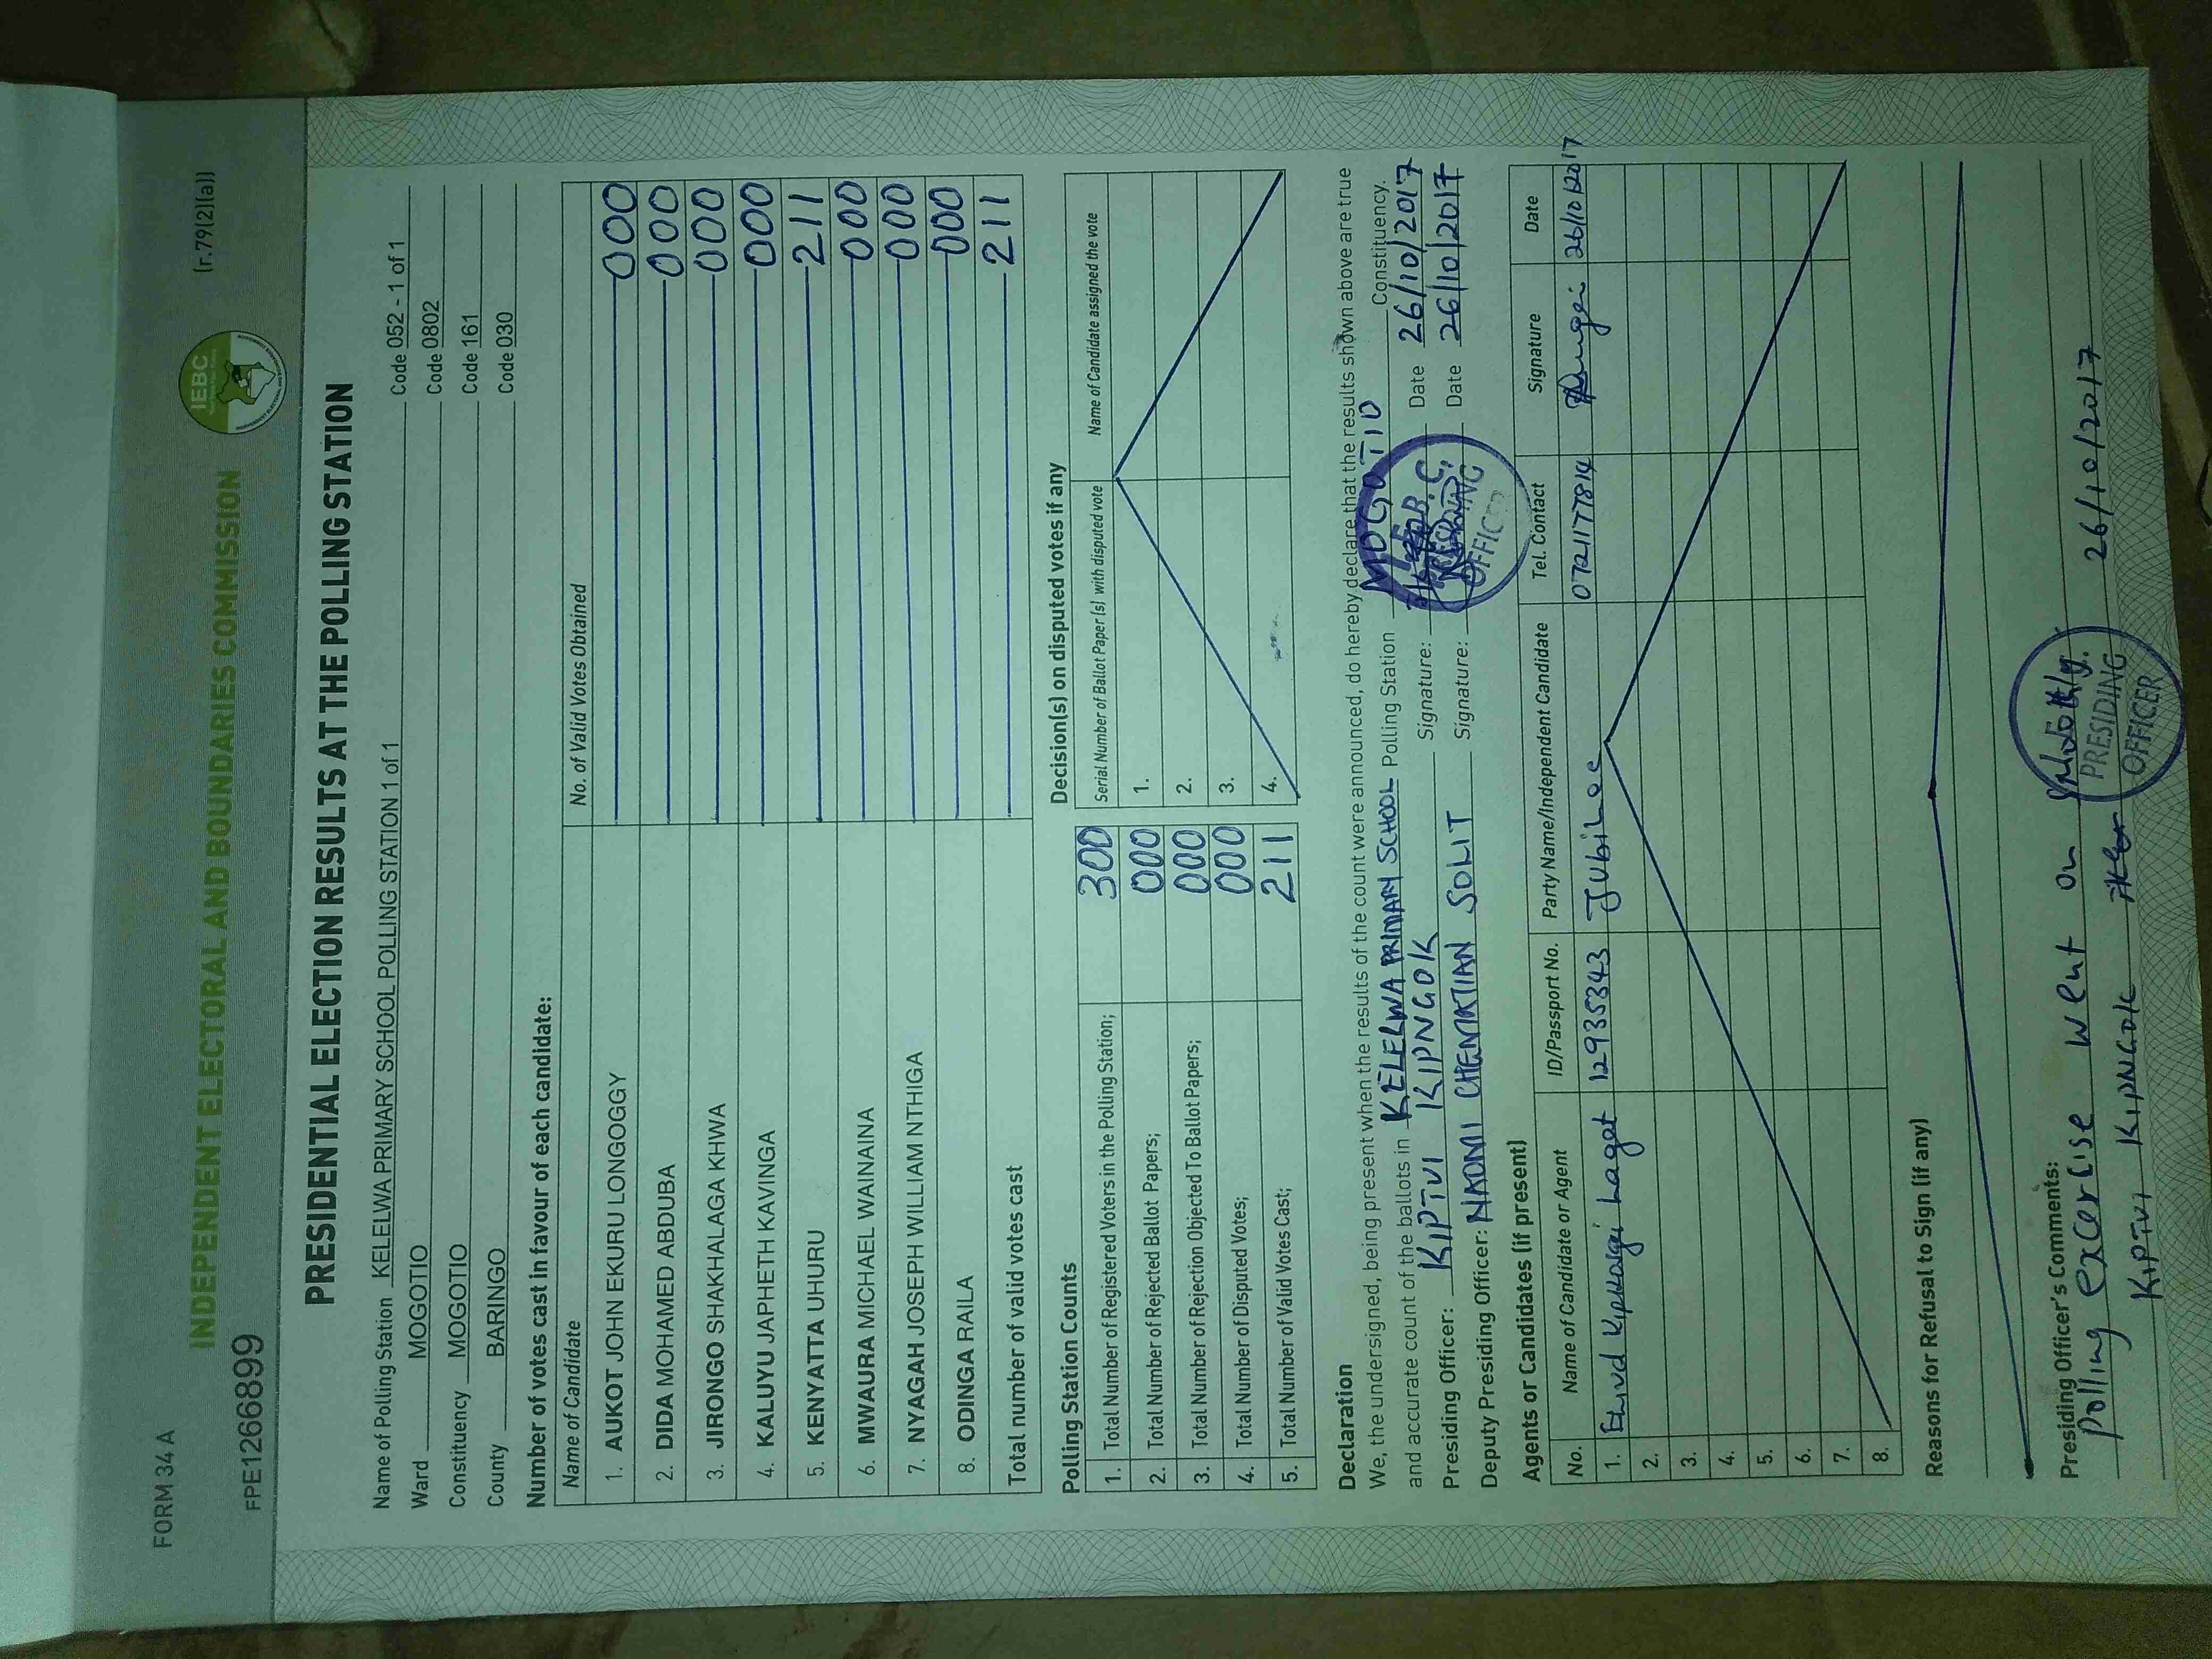 FORM 34 A
(r.79(2)(a))
INDEPENDENT ELECTORAL AND BOUNDARIES COMMISSION
IEBC
FPE1266899
PRESIDENTIAL ELECTION RESULTS AT THE POLLING STATION
Name of Polling Station KELELWA PRIMARY SCHOOL POLLING STATION 1 of 1 Code 052 - 1 of 1
Ward MOGOTIO Code 0802
Constituency MOGOTIO Code 161
County BARINGO Code 030
Number of votes cast in favour of each candidate:
Name of Candidate No. of Valid Votes Obtained
1. AUKOT JOHN EKURU LONGOGGY 000
2. DIDA MOHAMED ABDUBA 000
3. JIRONGO SHAKHALAGA KHWA 000
4. KALUYU JAPHETH KAVINGA 000
5. KENYATTA UHURU 211
6. MWAURA MICHAEL WAINAINA 000
7. NYAGAH JOSEPH WILLIAM NTHIGA 000
8. ODINGA RAILA 000
Total number of valid votes cast 211
Polling Station Counts
1. Total Number of Registered Voters in the Polling Station; 300
2. Total Number of Rejected Ballot Papers; 000
3. Total Number of Rejection Objected To Ballot Papers; 000
4. Total Number of Disputed Votes; 000
5. Total Number of Valid Votes Cast; 211
Decision(s) on disputed votes if any
Serial Number of Ballot Paper (s) with disputed vote Name of Candidate assigned the vote
1.
2.
3.
4.
Declaration
We, the undersigned, being present when the results of the count were announced, do hereby declare that the results shown above are true
and accurate count of the ballots in KELELWA PRIMARY SCHOOL Polling Station MOGOTIO Constituency.
Presiding Officer: KIPTUI KIPNGOK Signature: Date 26/10/2017
Deputy Presiding Officer: NAOMI CHEMATIAN SOLIT Signature: Date 26/10/2017
PRESIDING
OFFICER
Agents or Candidates (if present)
No. Name of Candidate or Agent ID/Passport No. Party Name/Independent Candidate Tel. Contact Signature Date
1. Lagat 12935343 Jubilee 0721177814 26/10/2017
2.
3.
4.
5.
6.
7.
8.
Reasons for Refusal to Sign (if any)
Presiding Officer's Comments:
Polling excercise went on smoothly. 26/10/2017
KIPTUI KIPNGOK
PRESIDING
OFFICER